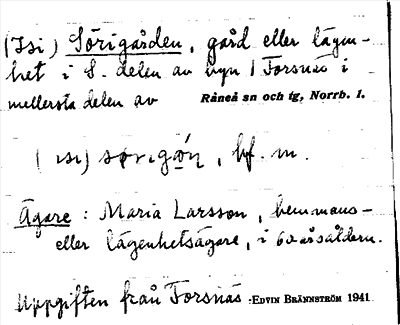 (Isi) Sörigården, gård eller lägen-
het i S. delen av byn Forsnäs i
mellersta delen av Råneå sn och tg, Norrb. l.
(isi) sørigǫ́n, bf. m.
Ägare: Maria Larsson, hemmans-
eller lägenhetsägare, i 60 årsåldern.
Uppgiften från Forsnäs EDVIN BRÄNNSTRÖM 1941